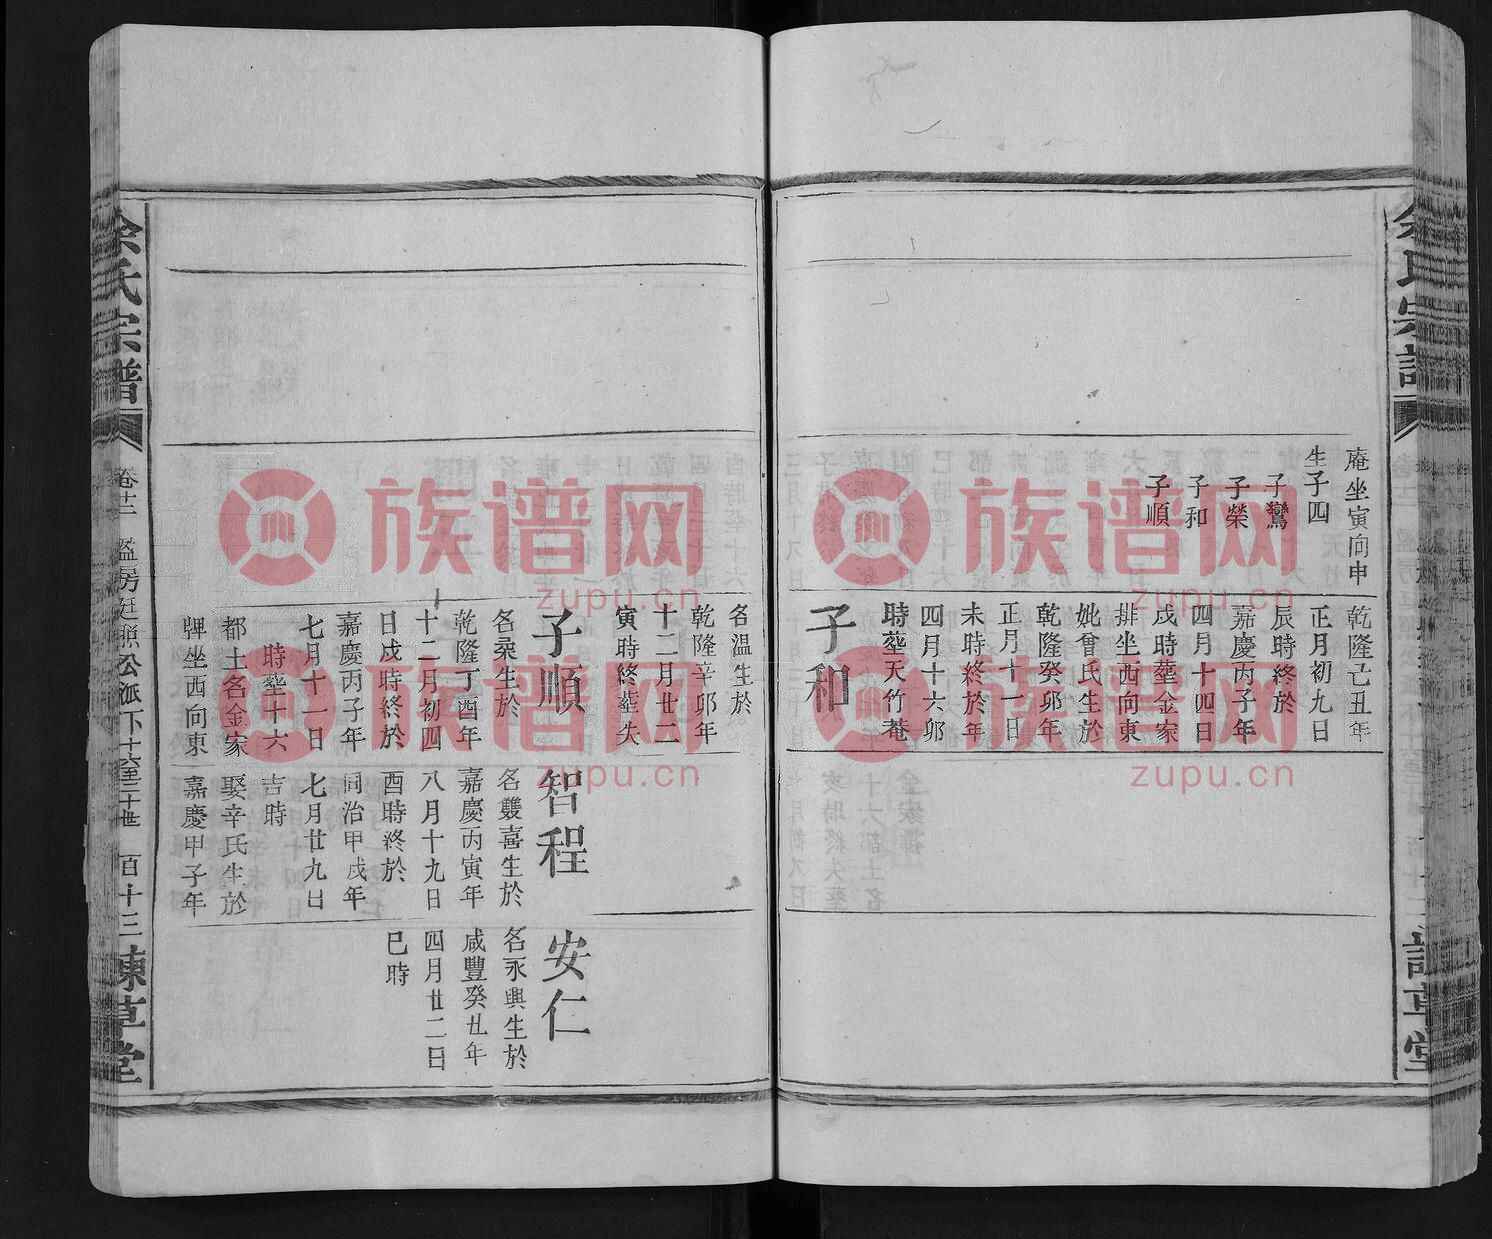 庵坐寅向申
生子四
子鸞
子榮
子和
子順
乾隆己丑年
正月初九日
辰時終於
嘉慶丙子年
四月十四日
戌時塟金家
排坐西向東
妣曾氏生於
乾隆癸卯年
正月十一日
未時終於年
四月十六卯
時塟天竹菴
子和
名溫生於
乾隆辛卯年
十二月廿二
寅時終塟失
子順
名喿生於
乾隆丁酉年
十二月初四
日戌時終於
嘉慶丙子年
七月十一日
時塟十六
都土名金家
牌坐西向東
智程
名雙喜生於
嘉慶丙寅年
八月十九日
酉時終於
同治甲戌年
七月廿九日
吉時
娶辛氏生於
嘉慶甲子年
安仁
名永興生於
咸豐癸丑年
四月廿二日
巳時
余氏宗譜
百十三
族谱网
zupu.cn
族谱网
zupu.cn
族谱网
zupu.cn
族谱网
zupu.cn